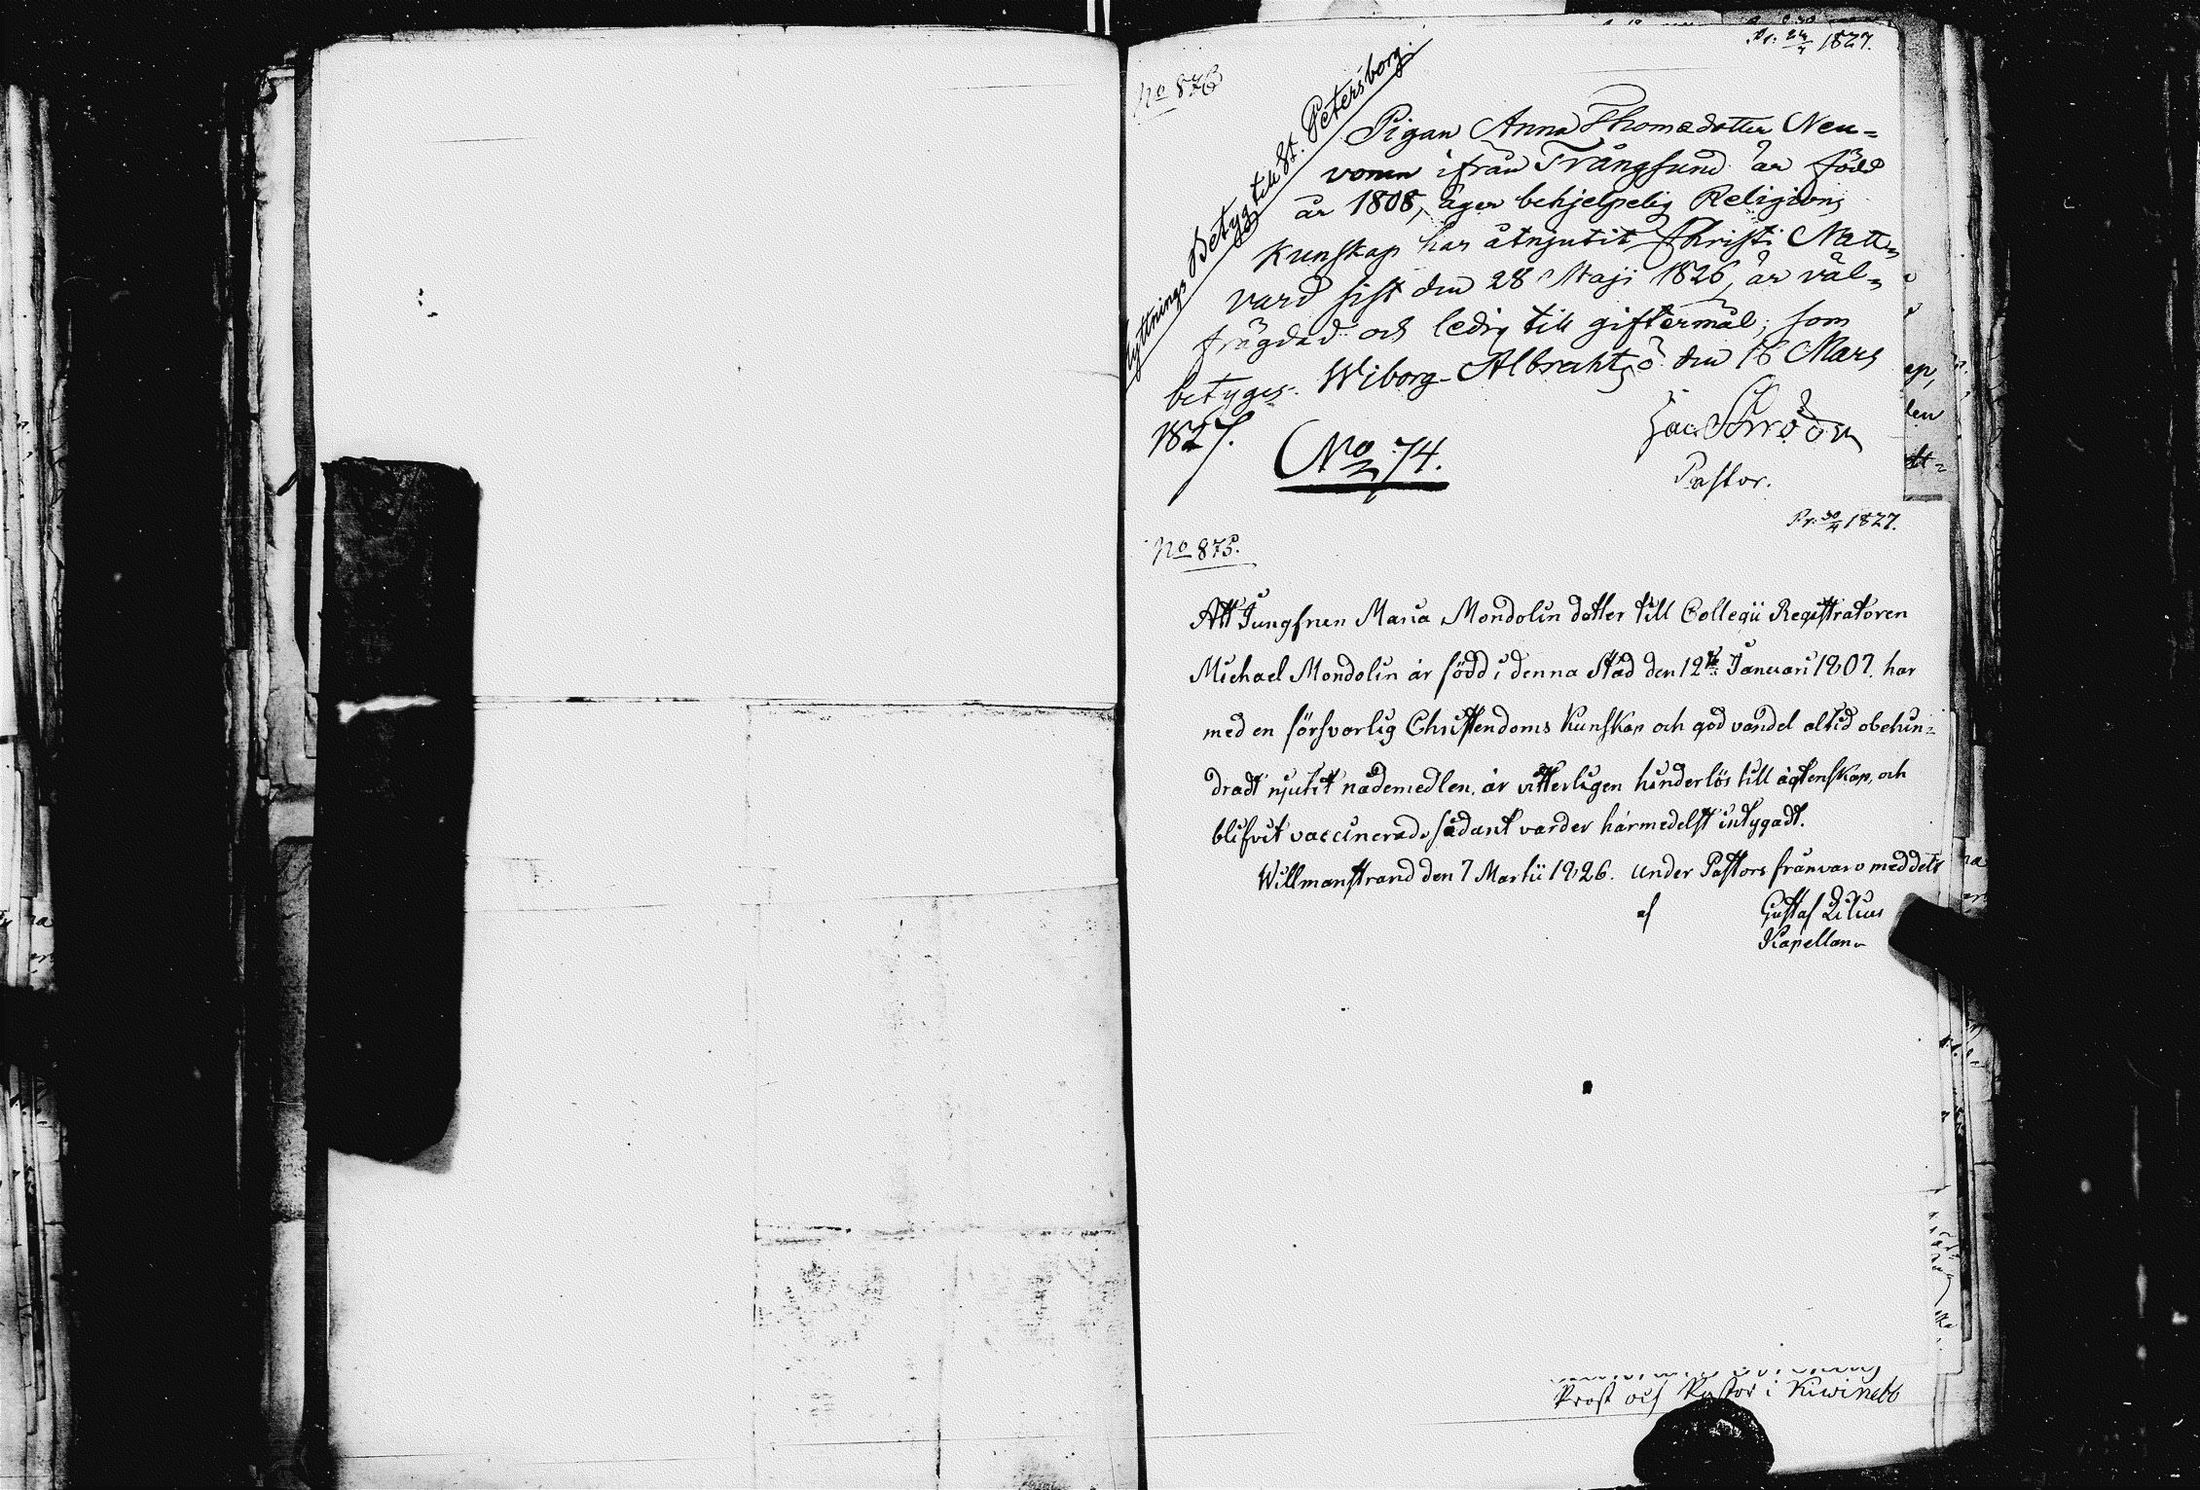 Pr: 24/4 1827.
No 876
Flyttnings Betyg till St. Petersborg.
Pigan Anna Thomædotter Neu=
vonen ifrån Trångsund är född
år 1808, äger behjelpelig Religions
Kunskap har åtnjutit Christi Natt=
vard sist den 28 Maji 1826, är väl=
frägdad och ledig till giftermål; som
betyges. Wiborg-Albrahtsö den 16 Mars
1827.
No 74.
Pastor.
Pr: 30/4 1827.
No 875.
Att Jungfrun Maria Mondolin dotter till Collegii Registratoren
Michael Mondolin är född i denna Stad den 12te Januari 1807. har
med en försvarlig Christendoms Kunskap och god vandel altid obehin=
dradt njutit nådemedlen, är vitterligen hinderlös till ägtenskap, och
blifvit vaccinerad, sådant varder härmedelst intygadt.
Willmanstrand den 7 Martii 1826. under Pastors frånvaro meddelt
af Gustaf Lilius
Kapellan.
Prost och Pastor i Kiwinebb